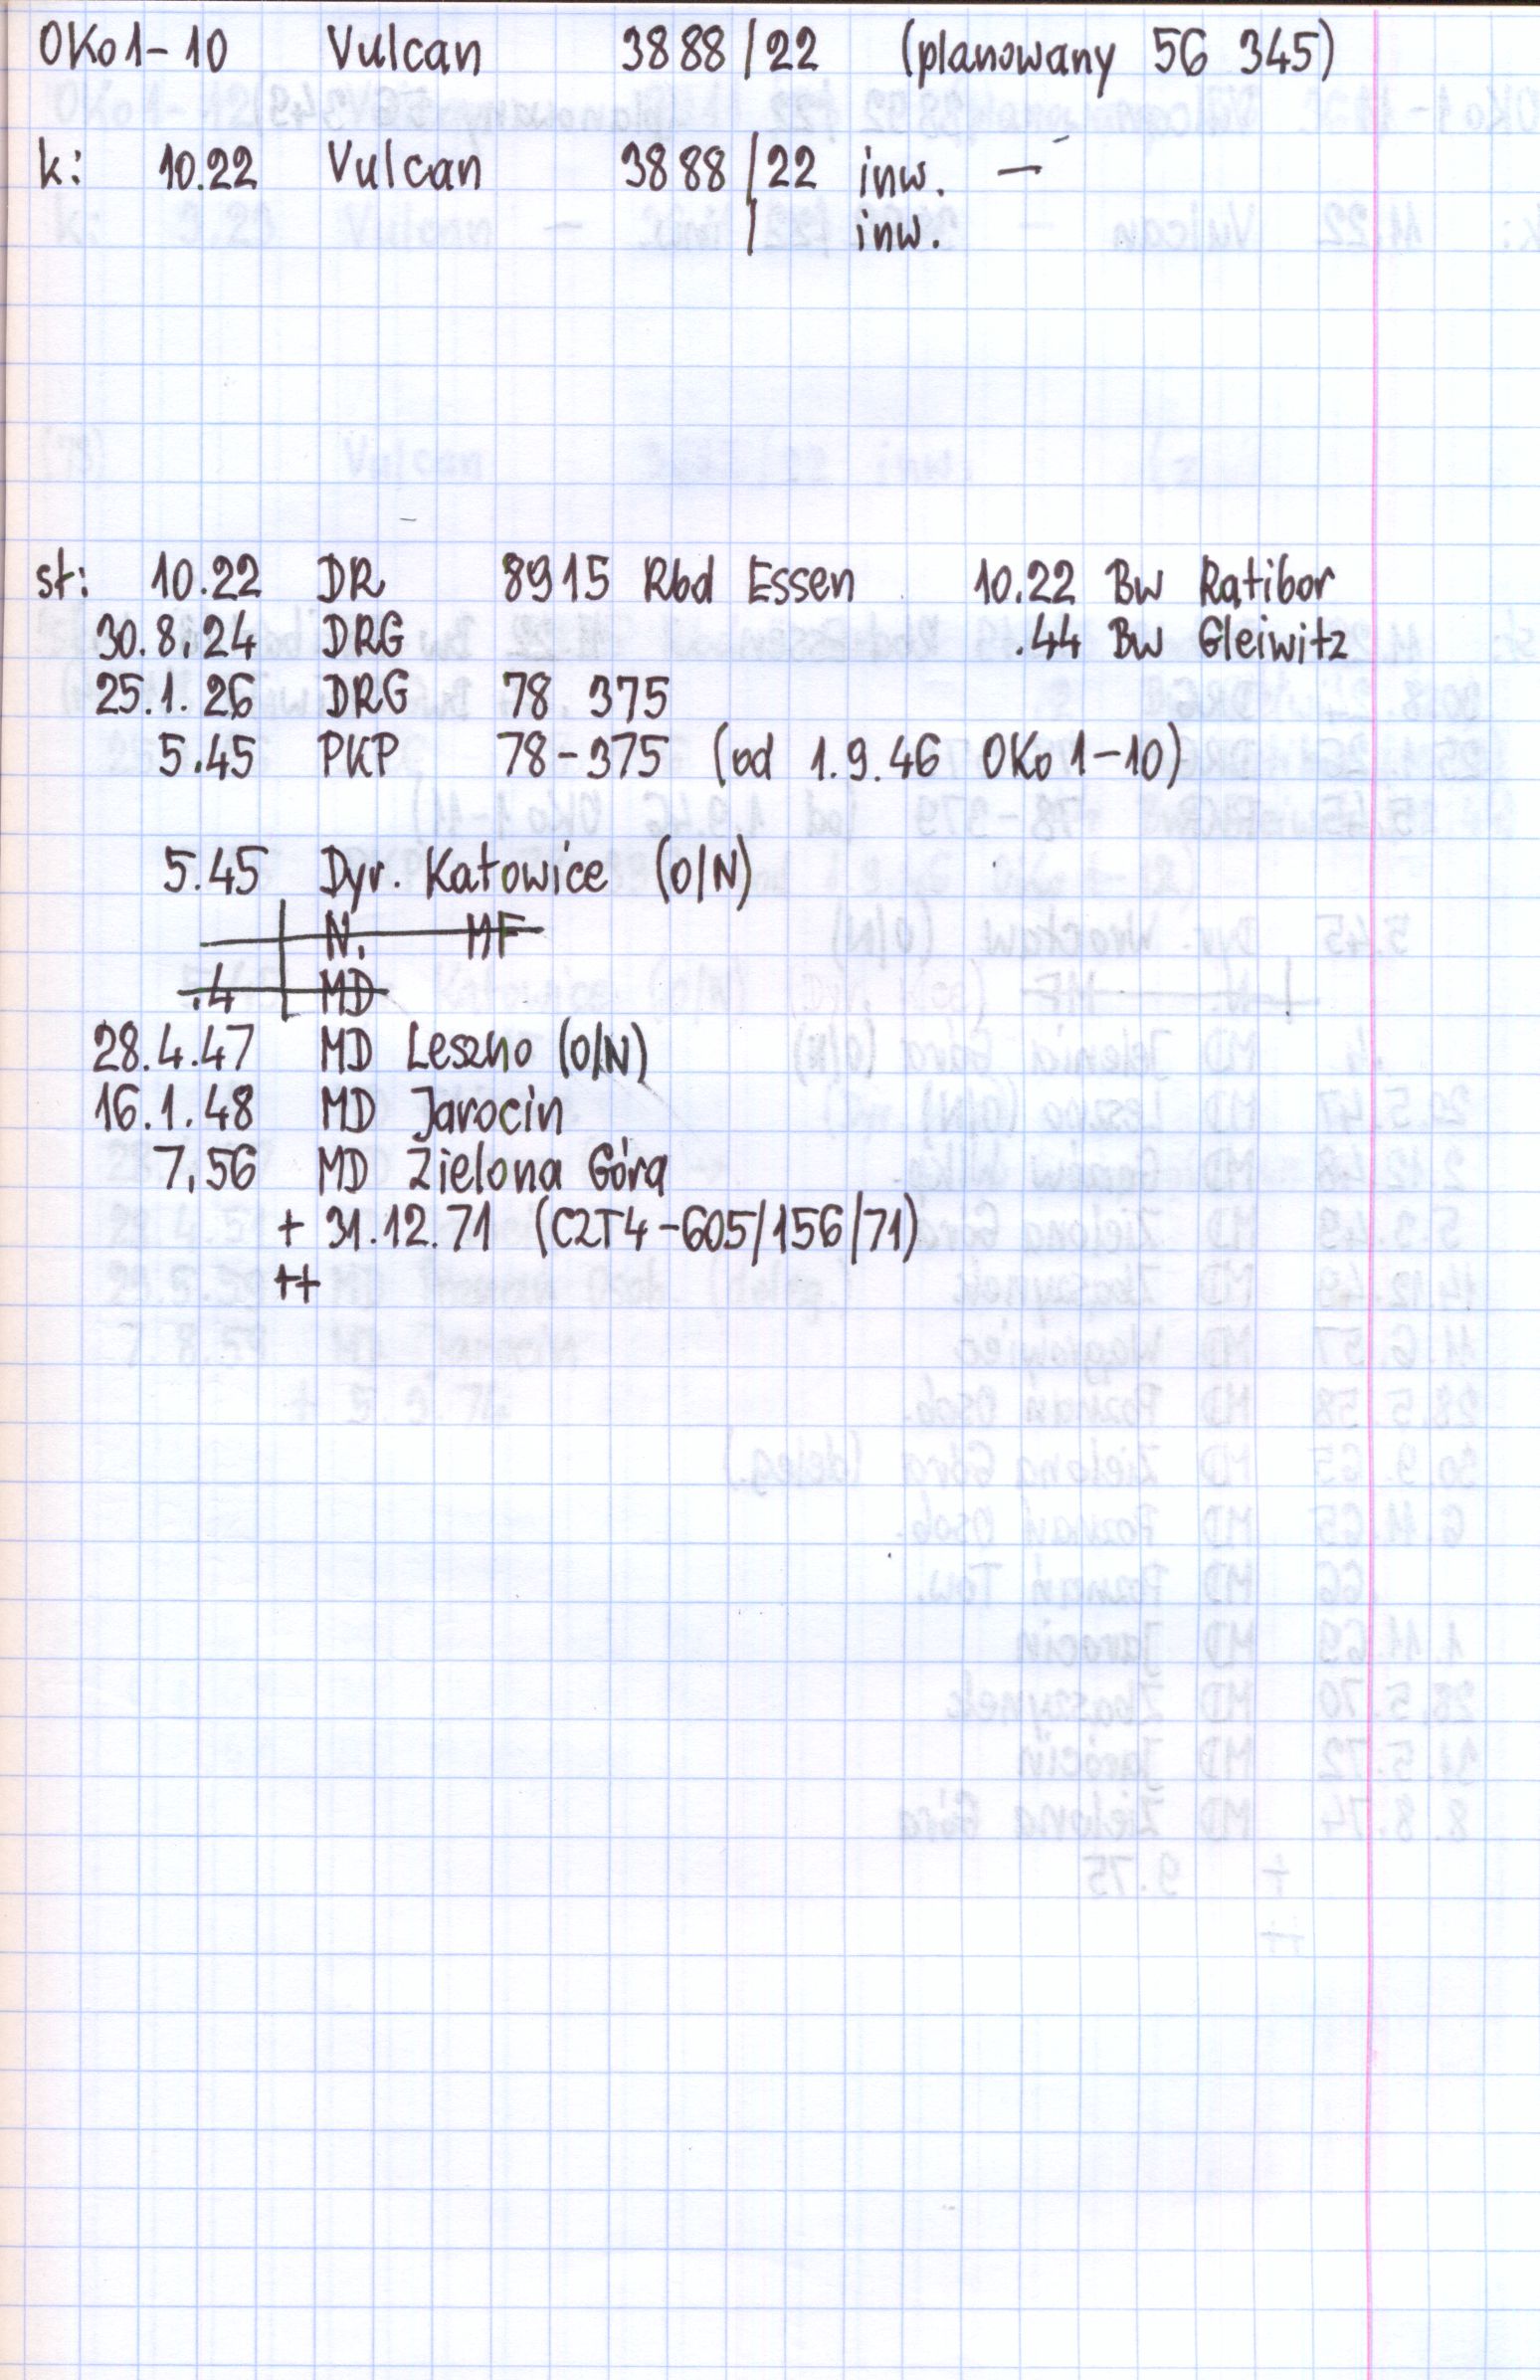 OKo1-10 Vulcan 3888/22 (planowany 56 345)
k: 10.22 Vulcan 3888/22 inw. —
/ inw.
st: 10.22 DR 8915 Rbd Essen 10.22 Bw Ratibor
30.8.24 DRG .44 Bw Gleiwitz
25.1.26 DRG 78 375
5.45 PKP 78-375 (od 1.9.46 OKo1-10)
5.45 Dyr. Katowice (O/N)
N. MF
.4 MD
28.4.47 MD Leszno (O/N)
16.1.48 MD Jarocin
7.56 MD Zielona Góra
+ 31.12.71 (CZT4-605/156/71)
++